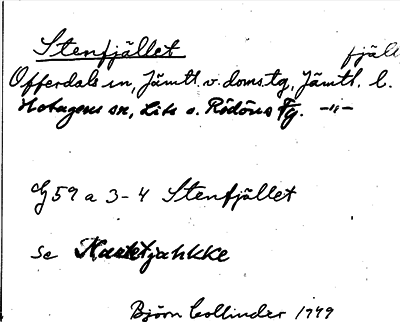 Stenfjället fjäll
Offerdals sn, Jämtl. v. doms.tg, Jämtl. l.
Hotagens sn, Lits o. Rödöns tg. -"-
59 a 3-4 Stenfjället
se
Björn Collinder 1949